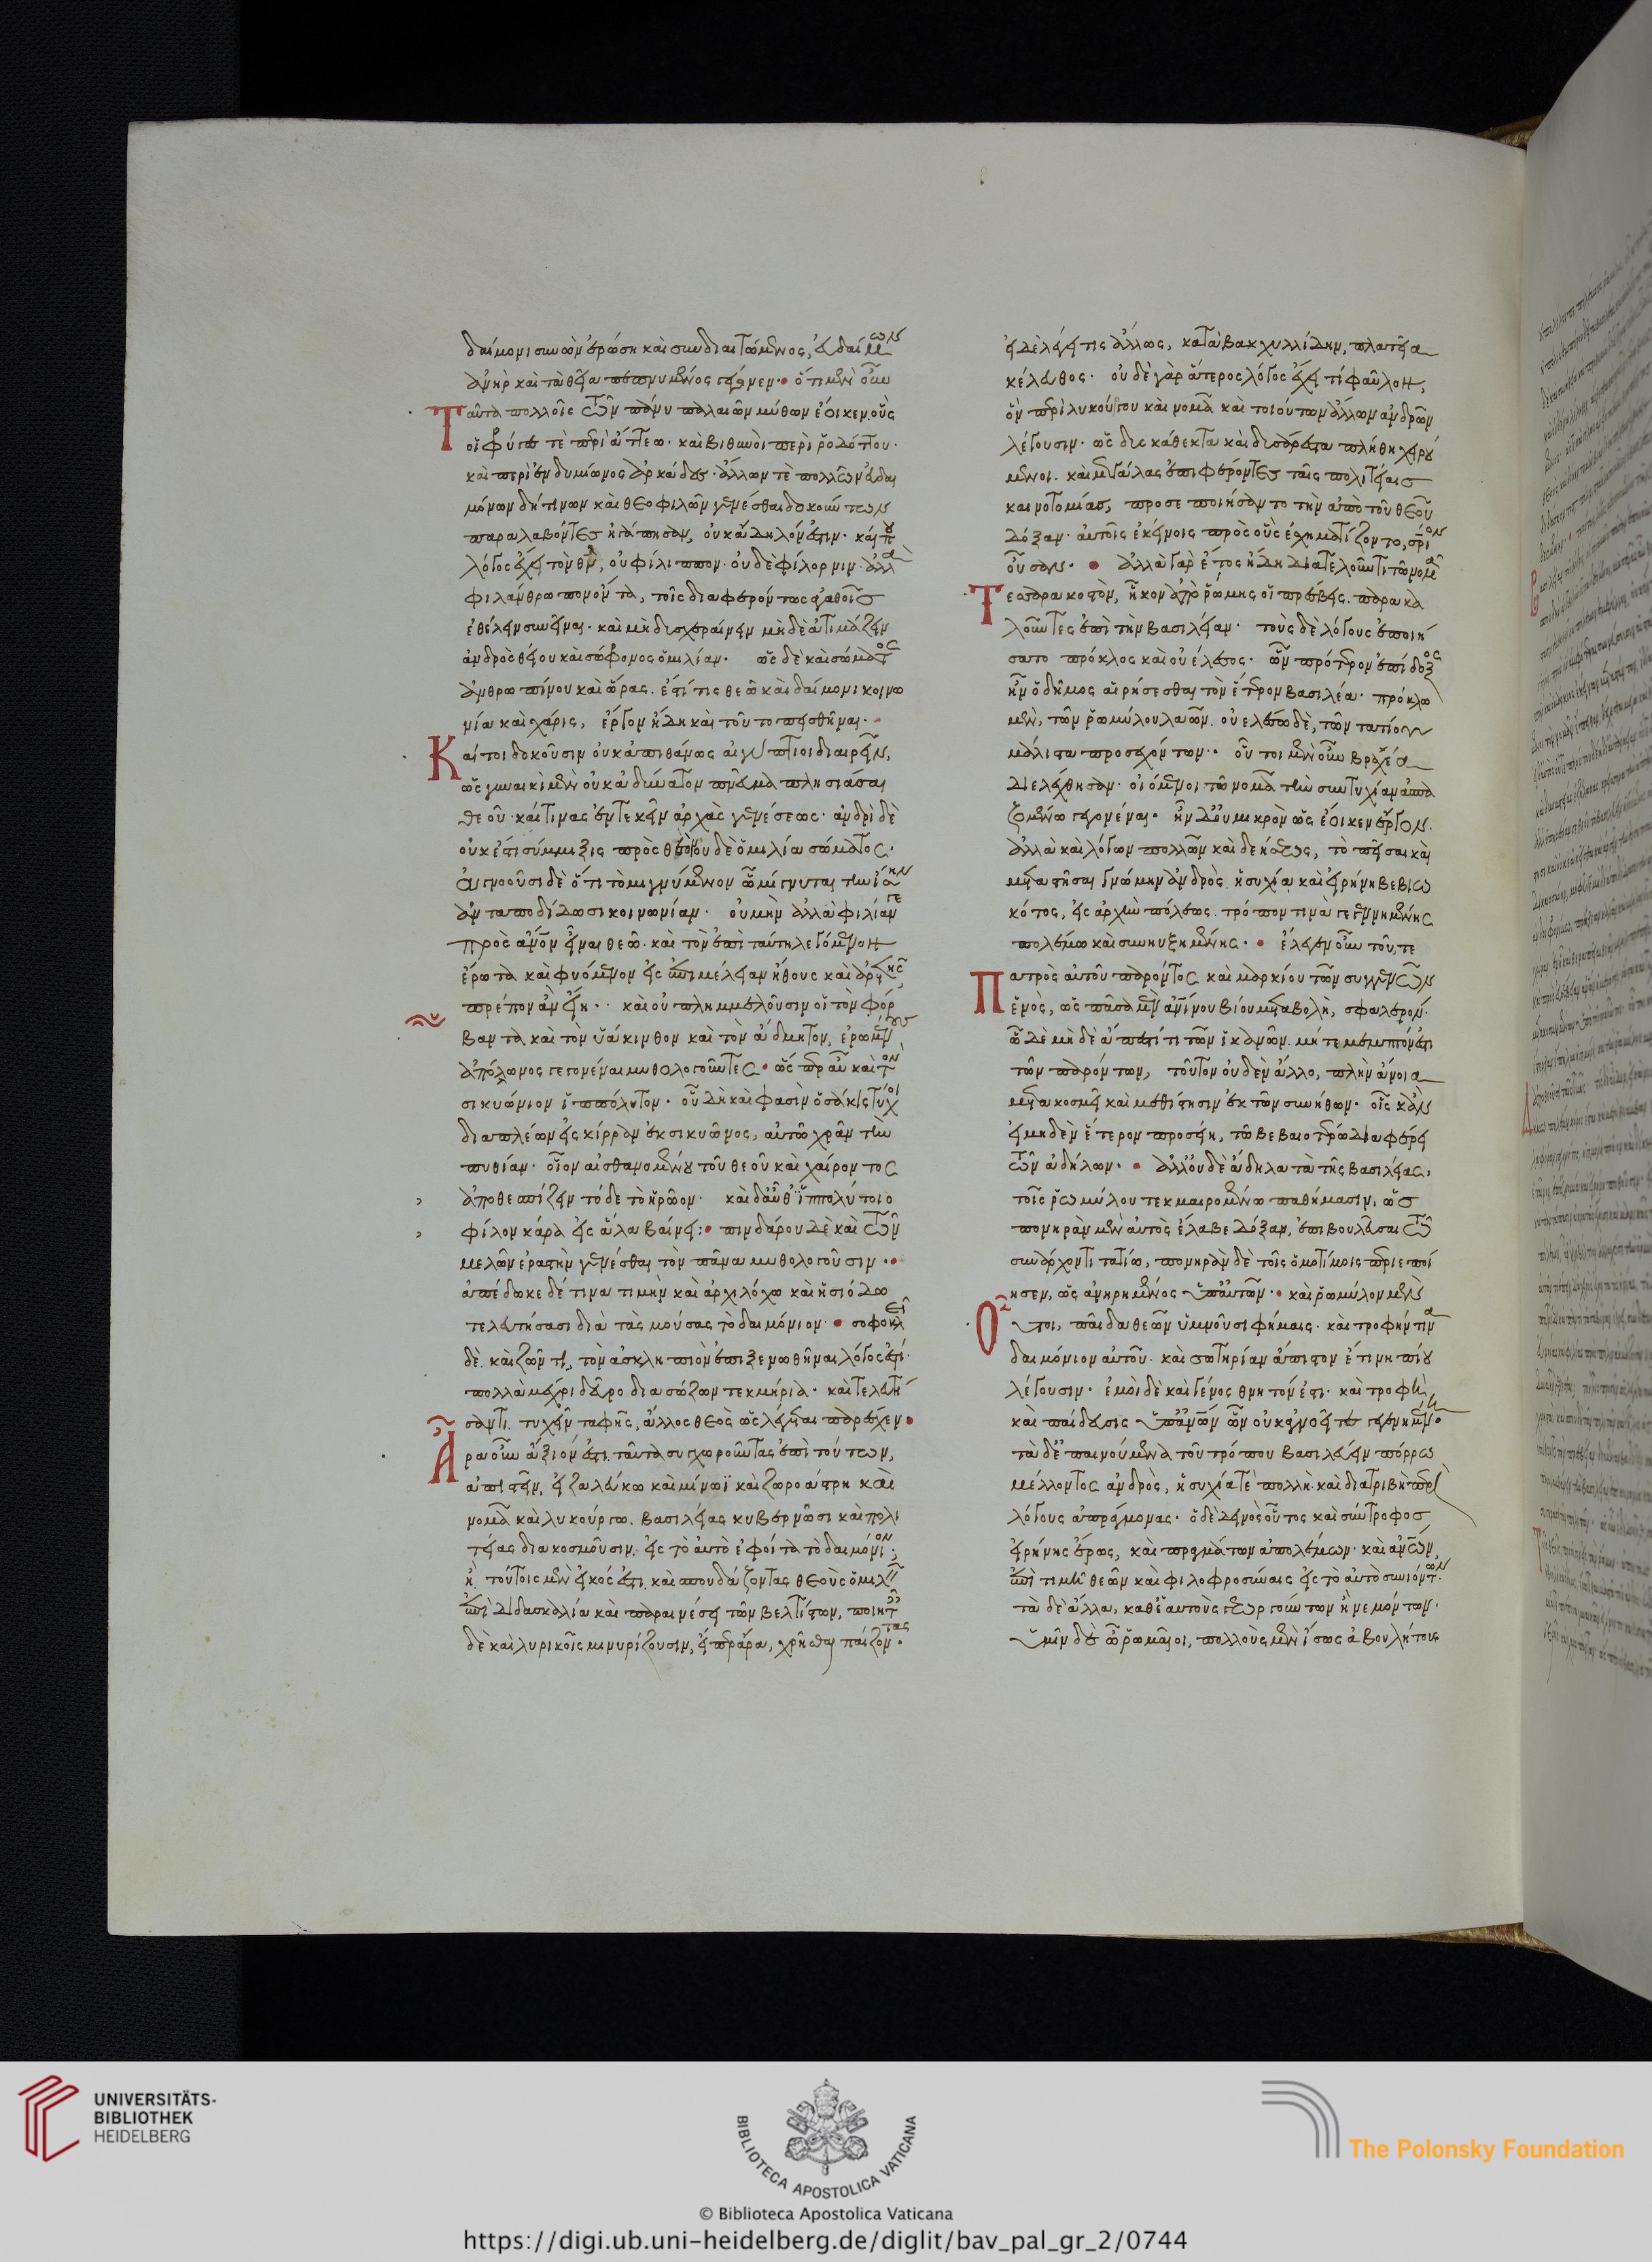 δαίμονι συνὼν ἐρώση καὶ συνδιαιτώμενος, εὐδαίμων
ἀνὴρ καὶ τὰ θεῖα πεπνυμένος γέγονεν· ὅτι μὲν οὖν
Ταῦτα πολλοῖς τῶν πάνυ παλαιῶν μύθων ἔοικεν, οὓς
οἱ φρύγες τὲ περὶ ἄττεω· καὶ βιθυνοὶ περὶ ῥοδότου·
καὶ περὶ ἐνδυμίωνος ἀρκάδες ἄλλων τὲ πολλῶν εὐδαι
μόνων δή τινων καὶ θεοφιλῶν γενέσθαι δοκούντων
παραλαβόντες ἠγάπησαν, οὐκ ἄδηλόν ἐστιν· καί που
λόγος ἔχει τὸν θεὸν, οὐ φίλιππον· οὐδὲ φίλορνιν· ἀλλὰ
φιλάνθρωπον ὄντα, τοῖς διαφερόντως ἀγαθοῖς
ἐθέλειν συνεῖναι· καὶ μὴ δυσχεραίνειν μηδὲ ἀτιμάζειν
ἀνδρὸς θείου καὶ σώφρονος ὁμιλίαν· ὡς δὲ καὶ σώματος
ἀνθρωπίνου καὶ ὥρας. ἐστί τις θεῶ καὶ δαίμονι κοινω
νία καὶ χάρις, ἔργον ἤδη καὶ τοῦτο πεισθῆναι·
Καίτοι δοκοῦσιν οὐκ ἀπιθάνως αἰγύπτιοι διαιρεῖν,
ὡς γυναικὶ μὲν οὐκ ἀδύνατον πνεῦμα πλησιάσαι
θεοῦ· καί τινας ἐντεκεῖν ἀρχὰς γενέσεως· ἀνδρὶ δὲ
οὐκ ἔστι σύμμιξις πρὸς θεὸν οὐδὲ ὁμιλία σώματος·
ἀγνοοῦσι δὲ ὅτι τὸ μιγνύμενον ὧ μίγνυται τὴν ἴσην
ἀνταποδίδωσι κοινωνίαν· οὐ μὴν ἀλλὰ φιλίαν γε
πρὸς ἄνθρωπον εἶναι θεῶ· καὶ τὸν ἐπὶ ταύτη λεγόμενον
ἔρωτα καὶ φυόμενον εἰς ἐπιμέλειαν ἤθους καὶ ἀρετῆς,
πρέπον ἂν εἴη· καὶ οὐ πλημμελοῦσιν οἱ τὸν φόρ
βαντα καὶ τὸν ὑάκινθον καὶ τὸν ἄδμητον, ἐρωμένους
ἀπόλλωνος γεγονέναι μυθολογοῦντες· ὥσπερ αὖ καὶ τὸν
σικυώνιον ἱππόλυτον· οὗ δὴ καὶ φασὶν ὁσάκις τύχοι
διαπλέων εἰς κίρραν ἐκ σικυῶνος, αὐτῶ χρᾶν τὴν
πυθίαν· οἷον αἰσθανομένου τοῦ θεοῦ καὶ χαίροντος
ἀποθεσπίζειν τόδε τὸ ἡρῶον· καὶ δ' αὖθ' ἱππολύτοιο
φίλον κάρα εἰς ἅλα βαίνει: πινδάρου δὲ καὶ τῶν
μελῶν ἐραστὴν γενέσθαι τὸν πᾶνα μυθολογοῦσιν·
ἀπέδωκε δέ τινα τιμὴν καὶ ἀρχιλόχω καὶ ἡσιόδω
τελευτήσασι διὰ τὰς μούσας τὸ δαιμόνιον· σοφοκλεῖ
δὲ καὶ ζῶντι, τὸν ἀσκληπιὸν ἐπιξενωθῆναι λόγος ἐστί·
πολλὰ μέχρι δεῦρο διασώζων τεκμήρια· καὶ τελευτή
σαντι τυχεῖν ταφῆς, ἄλλος θεὸς ὡς λέγεται παρέσχεν·
Ἆρα οὖν ἄξιόν ἐστι ταῦτα συγχωροῦντας ἐπὶ τούτων,
ἀπιστεῖν, εἰ ζαλεύκω καὶ μίνωϊ καὶ ζωροάστρη καὶ
νομᾶ καὶ λυκούργω. βασιλείας κυβερνῶσι καὶ πολι
τείας διακοσμοῦσιν· εἰς τὸ αὐτὸ ἐφοίτα τὸ δαιμόνιον;
ἢ τούτοις μὲν εἰκός ἐστι καὶ σπουδάζοντας θεοὺς ὁμιλεῖν
ἐπὶ διδασκαλία καὶ παραινέσει τῶν βελτίστων, ποιηταῖς
δὲ καὶ λυρικοῖς μινυρίζουσιν, εἴπερ ἄρα, χρῆσθαι παίζοντας·
εἰ δὲ λέγει τις ἄλλως, κατὰ βακχυλλίδην, πλατεῖα
κέλευθος· οὐδὲ γὰρ ἅτερος λόγος ἔχει τί φαῦλον,
ὃν περὶ λυκούργου καὶ νομᾶ καὶ τοιούτων ἄλλων ἀνδρῶν
λέγουσιν· ὡς δυσκάθεκτα καὶ δυσάρεστα πλήθη χειρού
μενοι· καὶ μεγάλας ἐπιφέροντες ταῖς πολιτείαις
καινοτομίας, προσεποιήσαντο τὴν ἀπὸ τοῦ θεοῦ
δόξαν· αὐτοῖς ἐκείνοις πρὸς οὓς ἐσχηματίζοντο, σωτήριον
οὖσαν· ἀλλὰ γὰρ ἔτος ἤδη διατελοῦντι τῶ νομᾶ
Τεσσαρακοστὸν, ἧκον ἀπὸ ῥώμης οἱ πρέσβεις. παρακα
λοῦντες ἐπὶ τὴν βασιλείαν· τοὺς δὲ λόγους ἐποιή
σαντο πρόκλος καὶ οὐέλεσος· ὧν πρότερον ἐπίδοξος
ἦν ὁ δῆμος αἱρήσεσθαι τὸν ἕτερον βασιλέα· πρόκλω
μὲν, τῶν ῥωμύλου λαῶν· οὐελέσω δὲ, τῶν τατίου
μάλιστα προσεχόντων· οὗτοι μὲν οὖν βραχέα
διελέχθησαν· οἰόμενοι τῶ νομᾶ τὴν συντυχίαν ἀσπα
ζομένω γεγονέναι· ἦν δ' οὐ μικρὸν ὡς ἔοικεν ἔργον·
ἀλλὰ καὶ λόγων πολλῶν καὶ δεήσεως, τὸ πεῖσαι καὶ
μεταστῆσαι γνώμην ἀνδρὸς ἡσυχία καὶ εἰρήνη βεβιω
κότος, εἰς ἀρχὴν πόλεως· τρόπον τινὰ γεγενημένης
πολέμω καὶ συνηυξημένης· ἔλεγεν οὖν τοῦ, τε
Πατρὸς αὐτοῦ παρόντος καὶ μαρκίου τῶν συγγενῶν
ἑνός, ὡς πᾶσα μὲν ἀνθρωπίνου βίου μεταβολὴ, σφαλερόν·
ὧ δὲ μηδὲ ἄπεστί τι τῶν ἱκανῶν· μήτε μεμπτόν ἐστι
τῶν παρόντων, τοῦτον οὐδὲν ἄλλο, πλὴν ἄνοια
μετακοσμεῖ καὶ μεθίστησιν ἐκ τῶν συνήθων· οἷς κἂν
εἰ μηδὲν ἕτερον προσείη, τῶ βεβαιοτέρω διαφέρει
τῶν ἀδήλων· ἀλλ' οὐδὲ ἄδηλα τὰ τῆς βασιλείας,
τοῖς ῥωμύλου τεκμαιρομένω παθήμασιν, ὡς
πονηρὰν μὲν αὐτὸς ἔλαβε δόξαν, ἐπιβουλεῦσαι τῶ
συνάρχοντι τατίω, πονηρὰν δὲ τοῖς ὁμοτίμοις περιεποί
ησεν, ὡς ἀνηρημένος ὑπ' αὐτῶν· καὶ ῥωμύλον μὲν
Οὗτοι, παῖδα θεῶν ὑμνοῦσι φήμαις· καὶ τροφήν τινα
δαιμόνιον αὐτοῦ· καὶ σωτηρίαν ἄπιστον ἔτι νηπίου
λέγουσιν· ἐμοὶ δὲ καὶ γένος θνητόν ἐστι· καὶ τροφὴ
καὶ παίδευσις ὑπ' ἀνθρώπων ὧν οὐκ ἀγνοεῖτε γεγενημένη·
τὰ δ' ἐπαινούμενα τοῦ τρόπου βασιλεύειν πόρρω
μέλλοντος ἀνδρὸς, ἡσυχία τὲ πολλὴ· καὶ διατριβὴ περὶ
λόγους ἀπράγμονας· ὁ δὲ δεινὸς οὗτος καὶ σύντροφος
εἰρήνης ἔρως, καὶ πραγμάτων ἀπολέμων· καὶ ἀνθρώπων,
ἐπὶ τιμῆ θεῶν καὶ φιλοφροσύναις εἰς τὸ αὐτὸ συνιόντων·
τὰ δὲ ἄλλα, καθ' ἑαυτοὺς γεωργούντων ἢ νεμόντων·
ὑμῖν δὲ ὦ ῥωμαῖοι, πολλοὺς μὲν ἴσως ἀβουλήτους
UNIVERSITÄTS-
BIBLIOTHEK
HEIDELBERG
BIBLIOTECA APOSTOLICA VATICANA
© Biblioteca Apostolica Vaticana
The Polonsky Foundation
https://digi.ub.uni-heidelberg.de/diglit/bav_pal_gr_2/0744